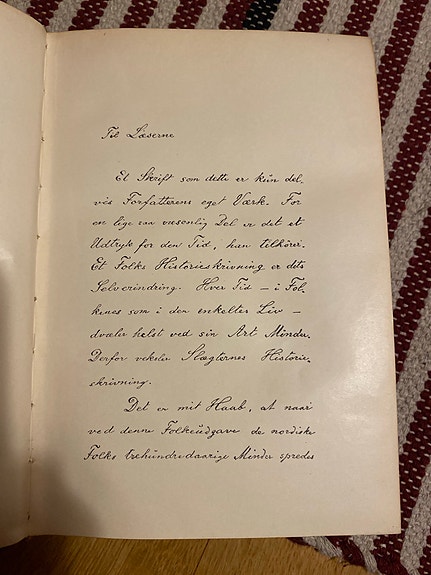 Til Læserne
Et Skrift som dette er kun del-
vis Forfatterens eget Værk. For
en lige saa væsenlig Del er det et
Udtryk for den Tid, han tilhører.
Et Folks Historieskrivning er dets
Selverindring. Hver Tid – i Fol-
kenes som i den enkeltes Liv –
dvæler helst ved sin Art Minder.
Derfor veksler Slægternes Historie-
skrivning.
Det er mit Haab, at naar
ved denne Folkeudgave de nordiske
Folks trehundredaarige Minder spredes